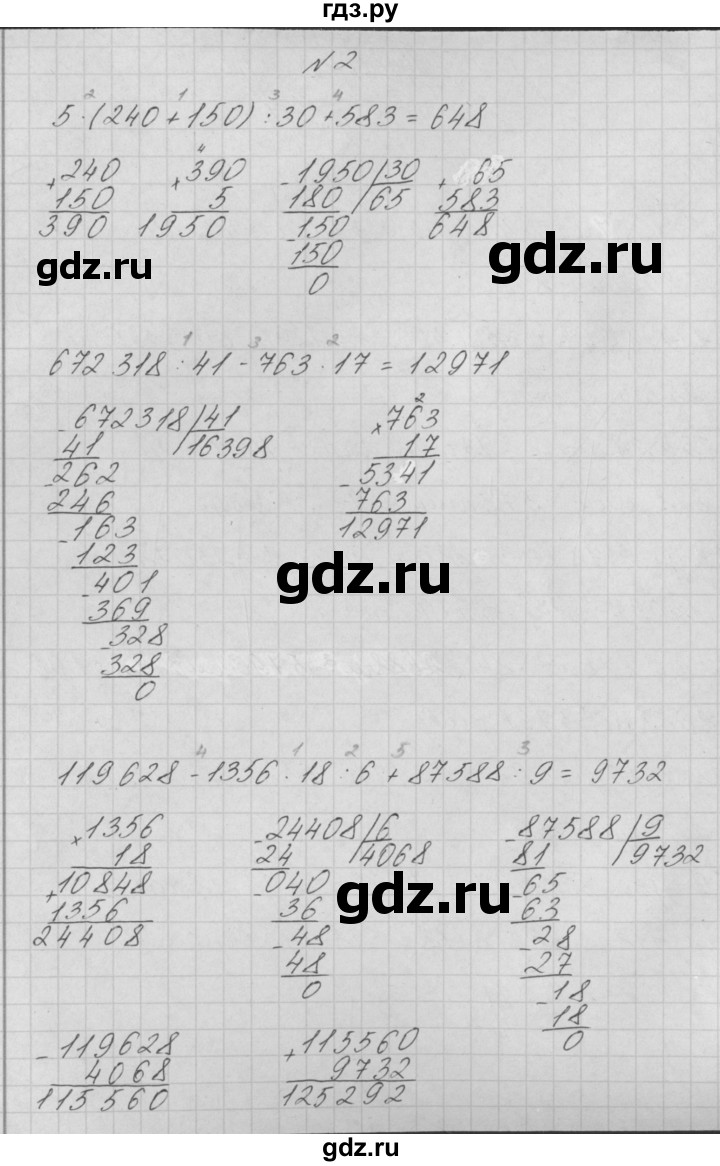 гдз.ру
№ 2
5 · (240 + 150) : 30 + 583 = 648
2 1 3 4
+ 240
150
390
4
× 390
5
1950
- 1950 | 30
180 | 65
- 150
150
0
+ 65
583
648
gdz.ru
gdz.ru
672 318 : 41 - 763 · 17 = 12971
1 3 2
- 672318 | 41
41 | 16398
- 262
246
- 163
123
- 401
369
- 328
328
0
2
× 763
17
- 5341
763
12971
gdz.ru
119 628 - 1356 · 18 : 6 + 87588 : 9 = 9732
4 1 2 5 3
× 1356
18
+ 10848
1356
24408
- 24408 | 6
24 | 4068
- 040
36
- 48
48
0
- 87588 | 9
81 | 9732
- 65
63
- 28
27
- 18
18
0
gdz.ru
gdz.ru
- 119628
4068
115 560
+ 115560
9732
125292
gdz.ru